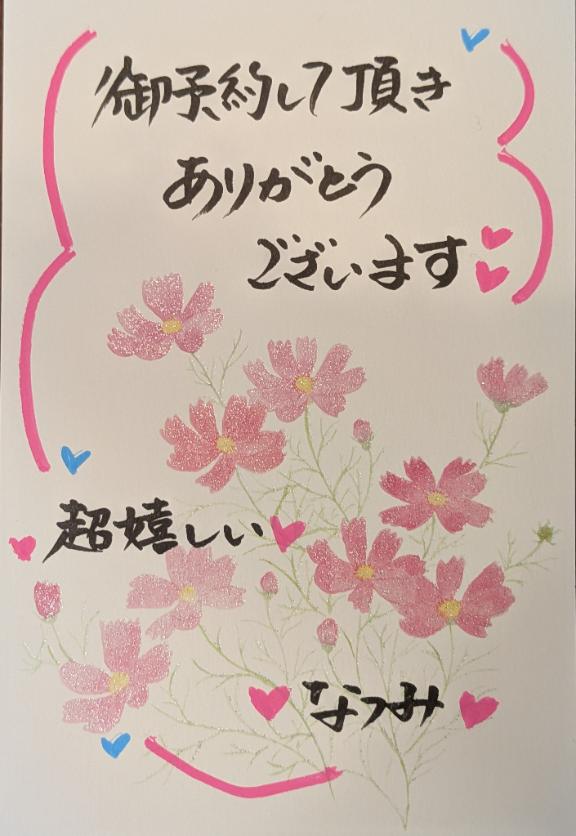 御予約して頂き
ありがとう
ございます
超嬉しい
なつみ